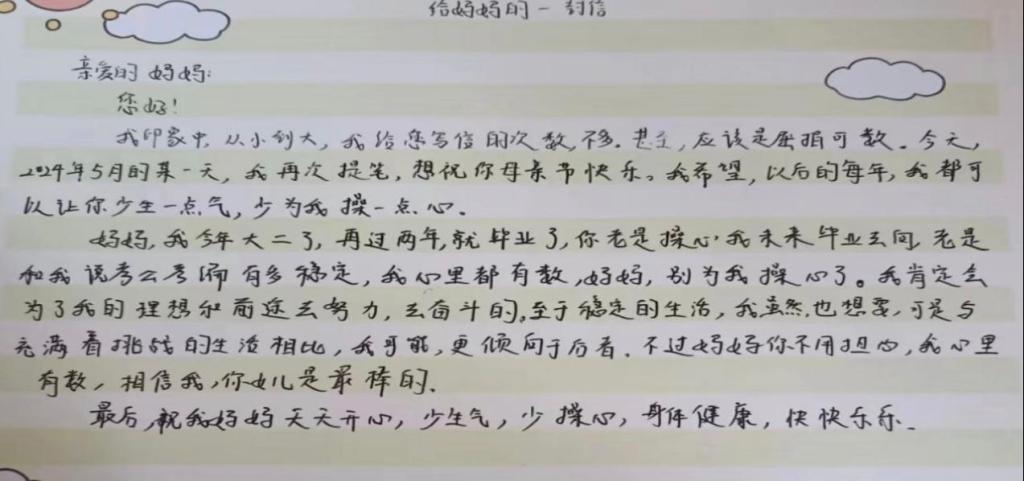 给妈妈的一封信
亲爱的妈妈:
您好!
我印象中,从小到大,我给您写信的次数,不多.甚至,应该是屈指可数。今天,
2024年5月的某一天,我再次提笔,想祝你母亲节快乐。我希望,以后的每年,我都可
以让你少生一点气,少为我操一点心.
妈妈,我今年大二了,再过两年,就毕业了,你老是操心,我未来毕业去向,老是
和我说考公考编有多稳定,我心里都有数,妈妈,别为我操心了。我肯定会
为了我的理想和前途去努力,去奋斗的,至于稳定的生活,我虽然,也想要,可是与
充满着挑战的生活相比,我可能,更倾向于后者.不过妈妈你不用担心,我心里
有数,相信我,你女儿是最棒的.
最后,祝我妈妈天天开心,少生气,少操心,身体健康,快快乐乐.